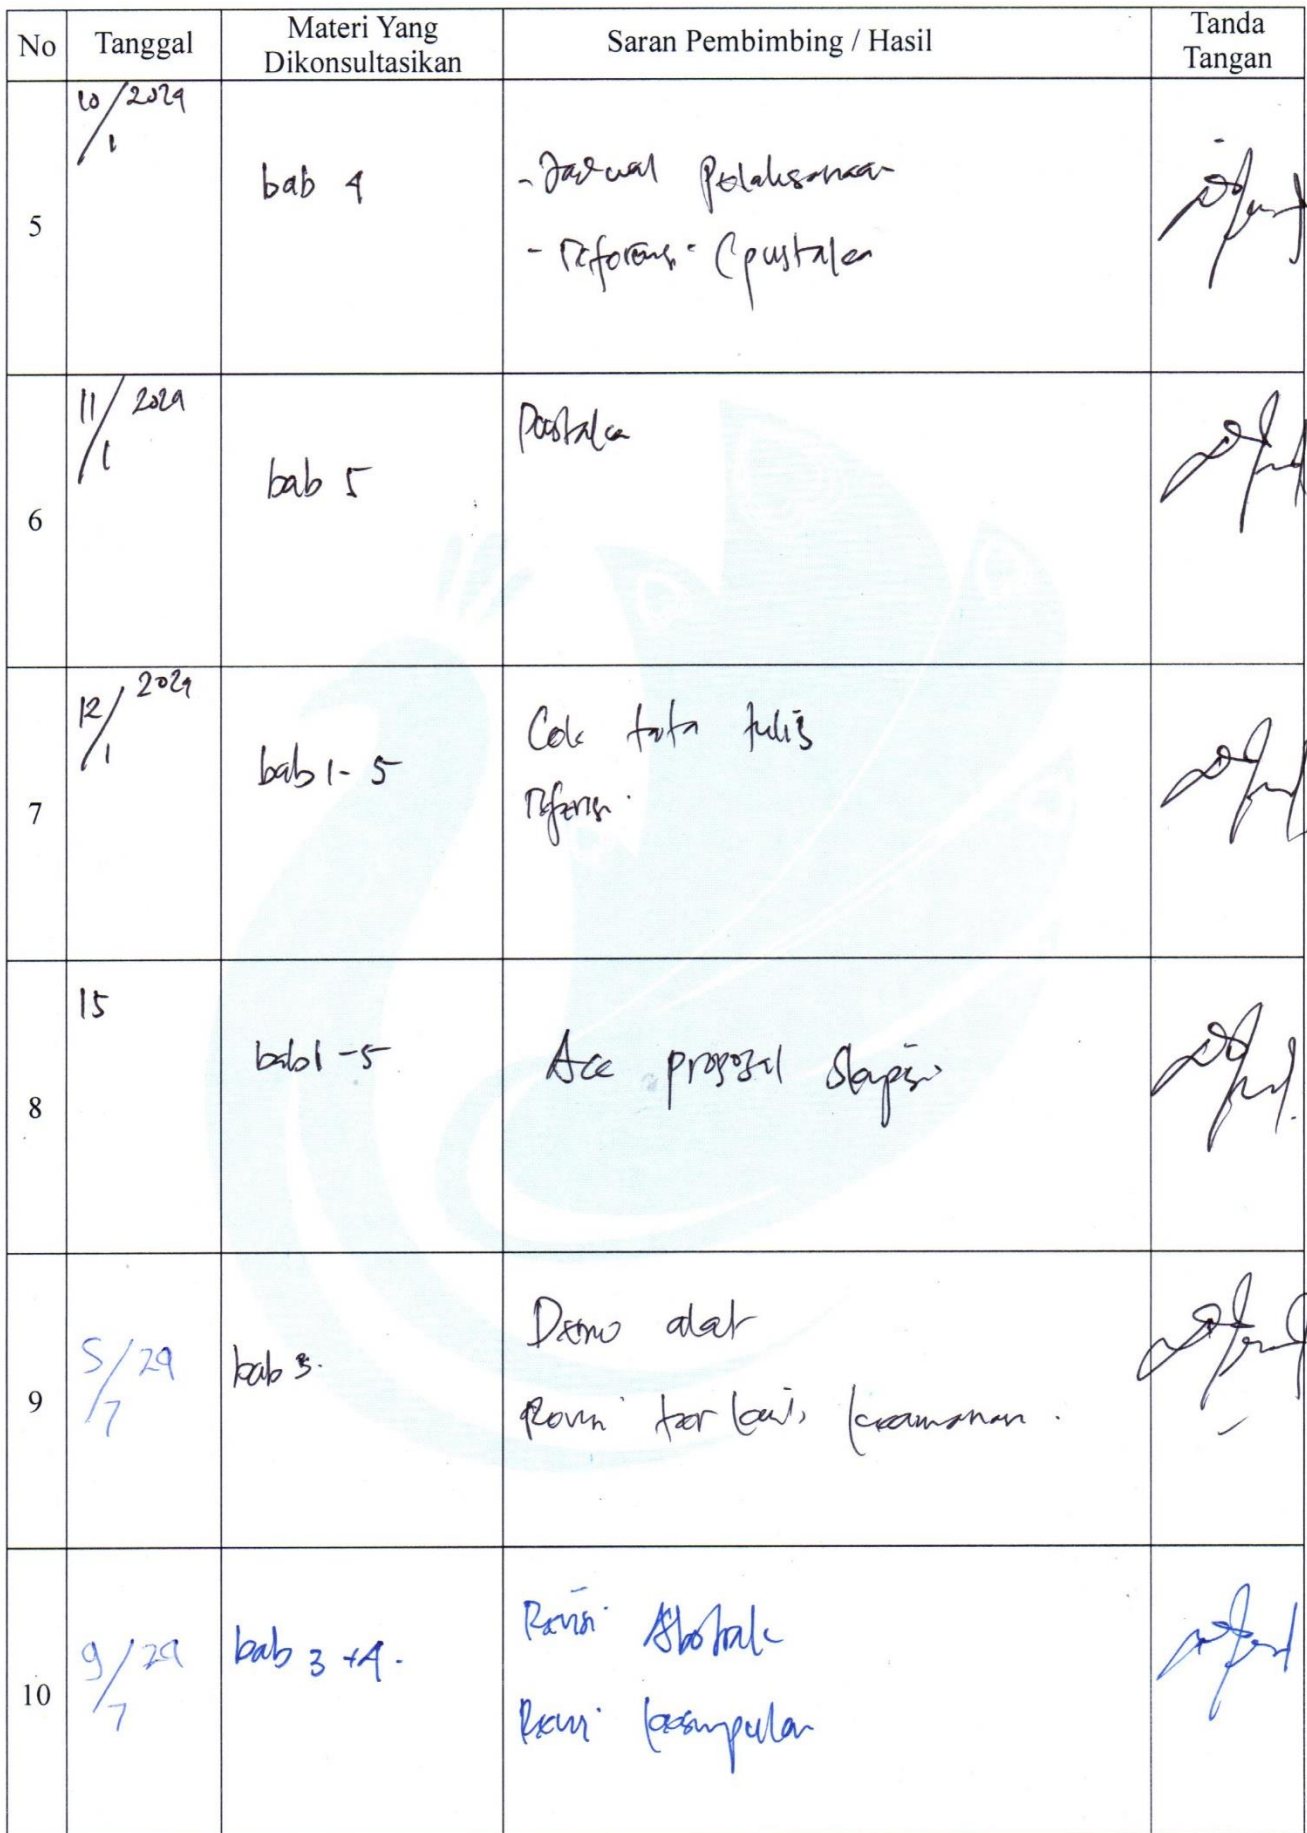 No Tanggal Materi Yang Dikonsultasikan Saran Pembimbing / Hasil Tanda Tangan
10/1 2024
5 bab 4 - Jadwal Pelaksanaan
- referensi (pustaka
11/1 2024
6 bab 5 Pustaka
12/1 2024
7 bab 1 - 5 Cek tata tulis
referensi
15
8 bab 1 - 5 Acc proposal skripsi
5/7 24
9 bab 3. Demo alat
Revisi keamanan.
9/7 24
10 bab 3 + 4. Revisi Abstrak
Revisi kesimpulan